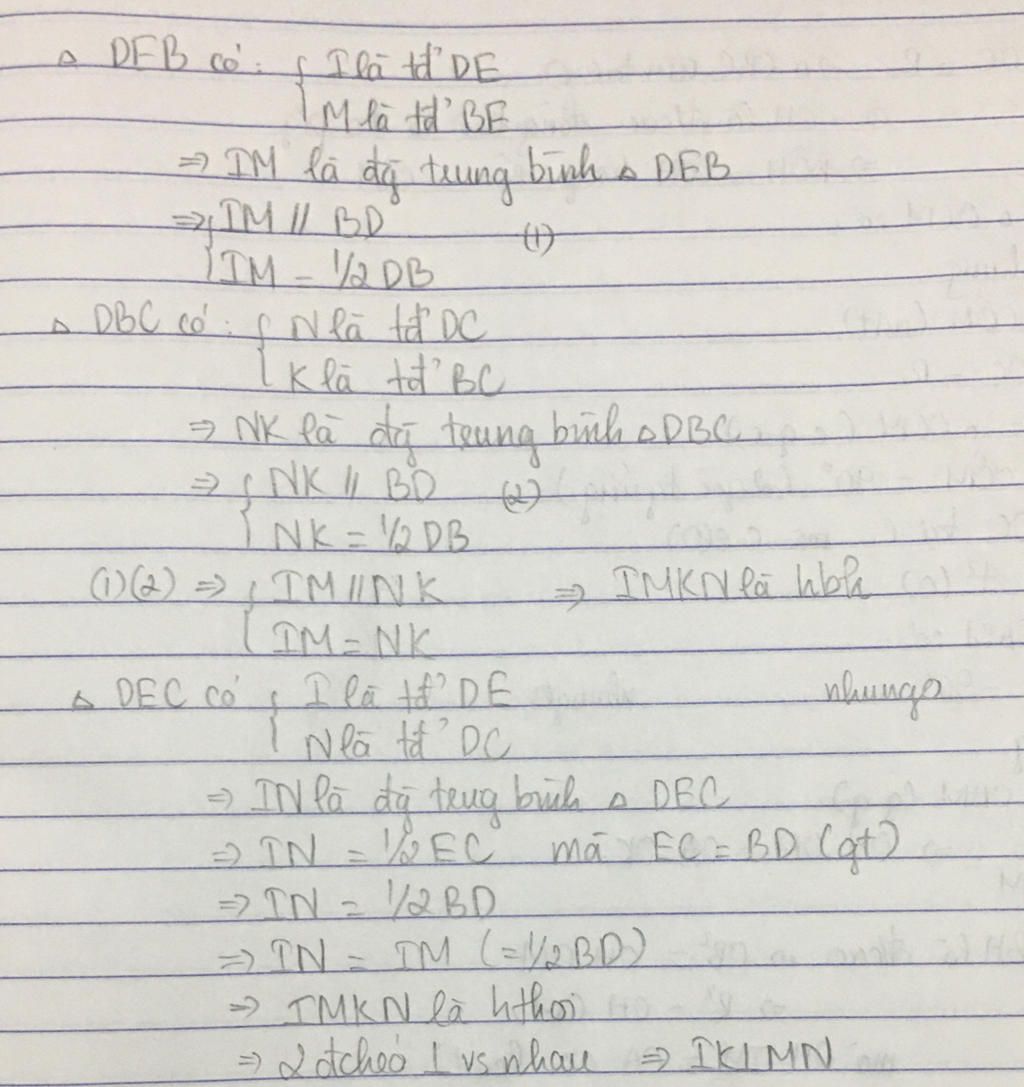 △ DEB có : { I là tđ' DE
M là tđ' BE
⇒ IM là đg̃ trung bình △ DEB
⇒ { IM // BD (1)
IM = 1/2 DB
△ DBC có : { N là tđ' DC
K là tđ' BC
⇒ NK là đg̃ trung bình △ DBC
⇒ { NK // BD (2)
NK = 1/2 DB
(1)(2) ⇒ { IM // NK ⇒ IMKN là hbh
IM = NK
△ DEC có { I là tđ' DE
N là tđ' DC
⇒ IN là đg̃ trug bình △ DEC
⇒ IN = 1/2 EC mà EC = BD (gt)
⇒ IN = 1/2 BD
⇒ IN = IM (= 1/2 BD)
⇒ IMKN là hthoi
⇒ 2 đchéo ⊥ vs nhau ⇒ IK ⊥ MN